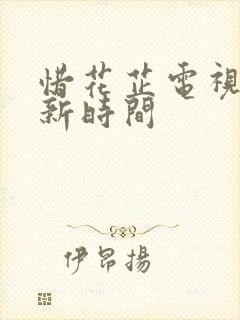 惜花芷電視
新時間
伊昂揚